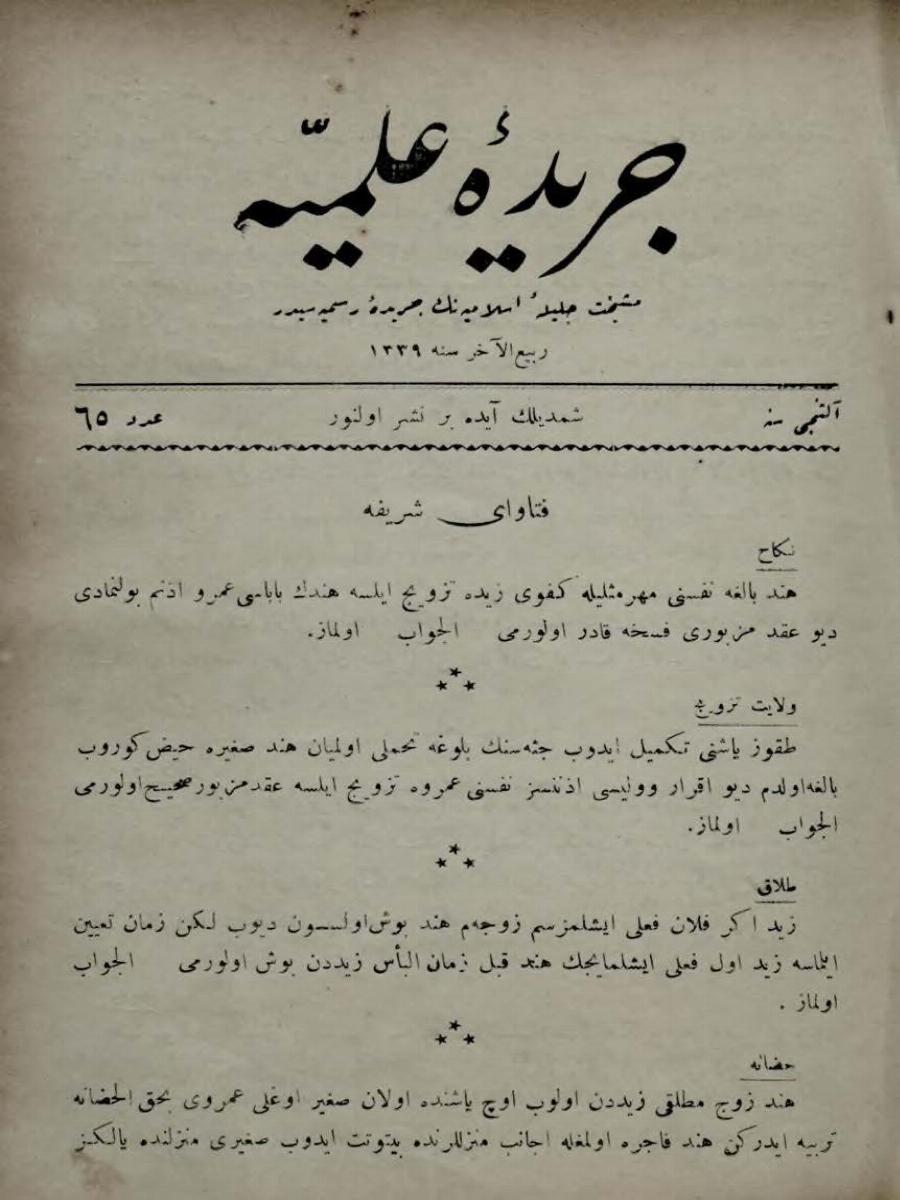 جريدۀ علميّه
مشيخت جليلۀ اسلاميه‌نك جريدۀ رسميه‌سيدر
ربيع الآخر سنه ١٣٣٩
آلتنجى سنه
شمديلك آيده بر نشر اولنور
عدد ٦٥
فتاواى شريفه
نكاح
هند بالغه نفسنى مهر مثليله كفوى زيده تزويج ايلسه هندك باباسى عمرو اذنم بولنمادى
ديو عقد مزبورى فسخه قادر اولورمى الجواب اولماز.
ولايت تزويج
طقوز ياشنى تكميل ايدوب جثه‌سنك بلوغه تحملى اولميان هند صغيره حيض كوروب
بالغه اولدم ديو اقرار ووليسى اذنسز نفسنى عمروه تزويج ايلسه عقد مزبور صحيح اولورمى
الجواب اولماز.
طلاق
زيد اكر فلان فعلى ايشلمزسم زوجه‌م هند بوش اولسون ديوب لكن زمان تعيين
ايتماسه زيد اول فعلى ايشلمايجك هند قبل زمان البأس زيددن بوش اولورمى الجواب
اولماز .
حضانه
هند زوج مطلقى زيددن اولوب اوچ ياشنده اولان صغير اوغلى عمروى بحق الحضانه
تربيه ايدركن هند فاجره اولمغله اجانب منزللرنده بيتوتت ايدوب صغيرى منزلنده يالكز